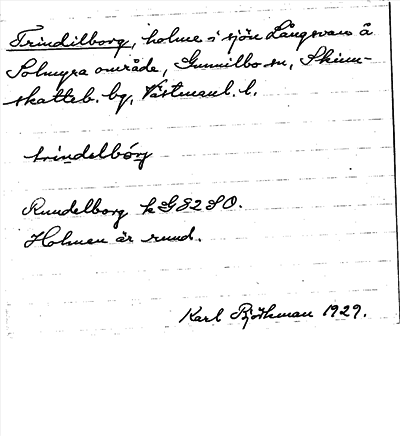 Trindilborg, holme i sjön Långsvan å
Solmyra område, Gunnilbo sn, Skinn-
skatteb. bg, Västmanl. l.
trindelbórg
Rundelborg k G82SO.
Holmen är rund.
Karl Björkman 1929.